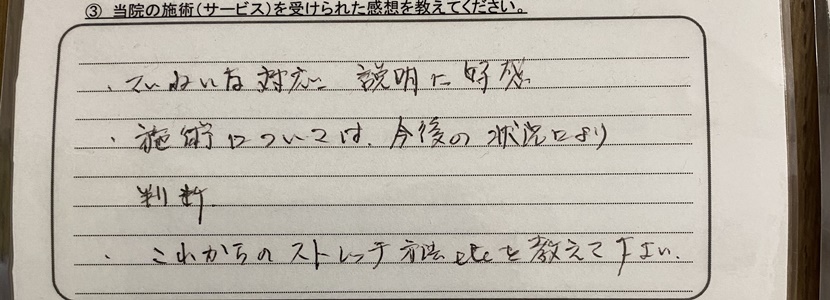 ③ 当院の施術(サービス)を受けられた感想を教えてください。
・ていねいな対応 説明に好感
・施術については、今後の状況により
判断。
・これからのストレッチ方法etcを教えて下さい。